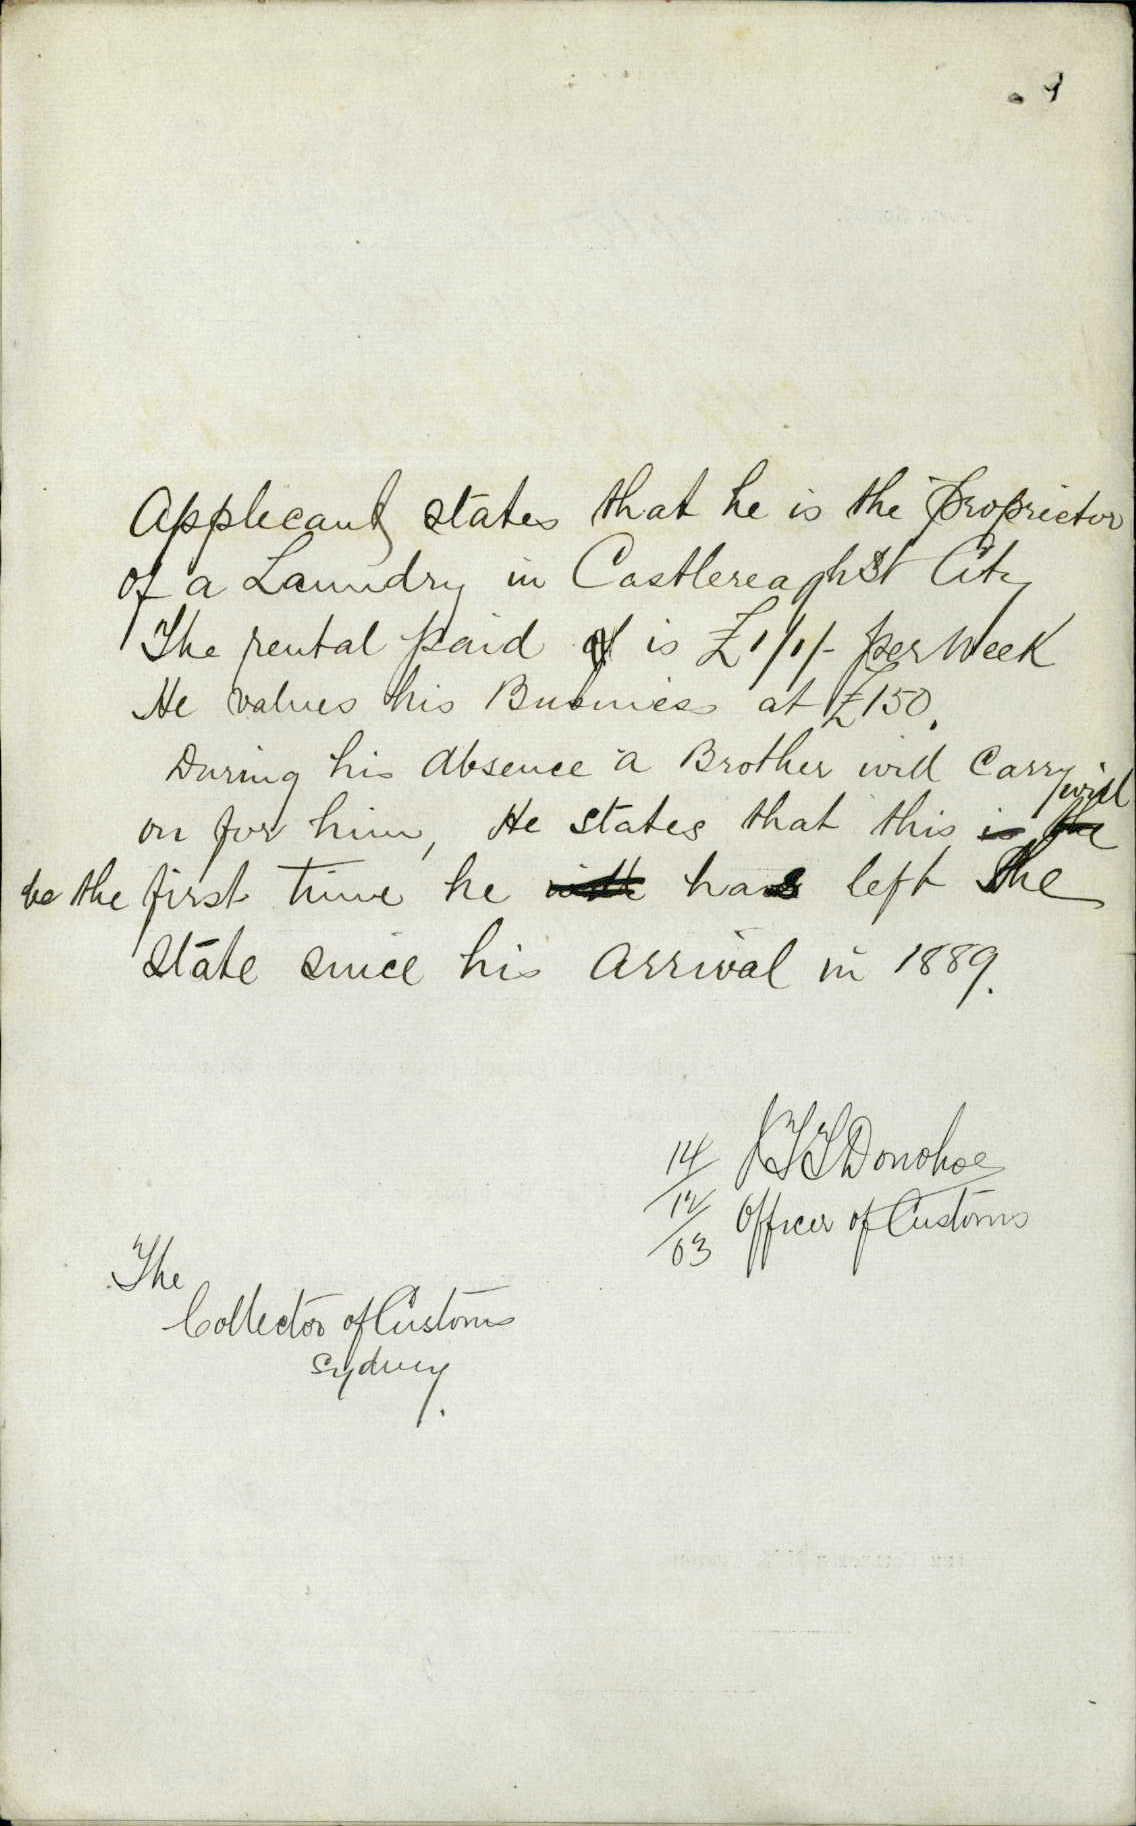 Applicant states that he is the Proprietor
of a Laundry in Castlereagh St City
The rental paid is £1/1/- per Week
He values his Business at £150.
During his absence a Brother will Carry
on for him, He states that this will
be the first time he has left the
State since his arrival in 1889.
14/12/03 Donohoe
Officer of Customs
The
Collector of Customs
Sydney.